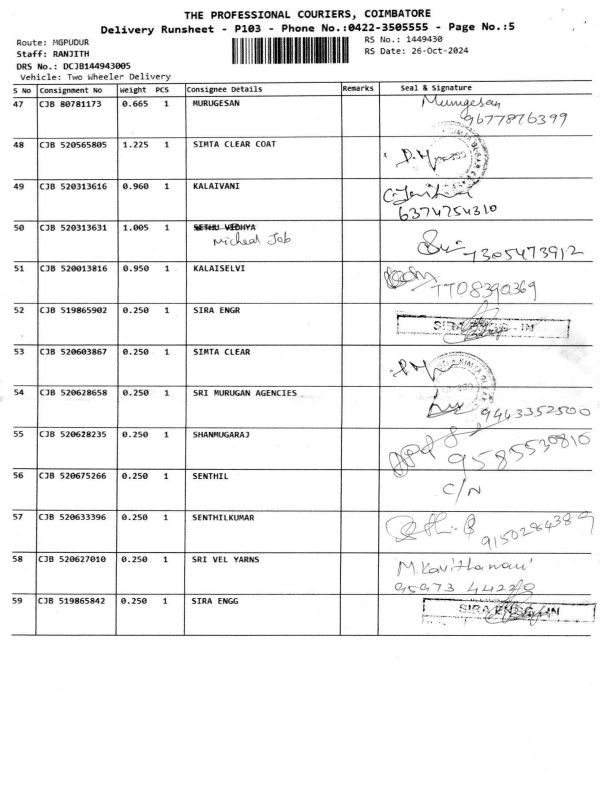 THE PROFESSIONAL COURIERS, COIMBATORE
Delivery Runsheet - P103 - Phone No.:0422-3505555 - Page No.:5
Route: MGPUDUR
RS No.: 1449430
Staff: RANJITH
RS Date: 26-Oct-2024
DRS No.: DCJB144943005
Vehicle: Two Wheeler Delivery
S No Consignment No Weight PCS Consignee Details Remarks Seal & Signature
47 CJB 80781173 0.665 1 MURUGESAN Murugesan
9677876399
48 CJB 520565805 1.225 1 SIMTA CLEAR COAT
49 CJB 520313616 0.960 1 KALAIVANI
6374754310
50 CJB 520313631 1.005 1 SETHU VIDHYA
Micheal Job 7305473912
51 CJB 520013816 0.950 1 KALAISELVI
7708390369
52 CJB 519865902 0.250 1 SIRA ENGR
53 CJB 520603867 0.250 1 SIMTA CLEAR
54 CJB 520628658 0.250 1 SRI MURUGAN AGENCIES
9463352500
55 CJB 520628235 0.250 1 SHANMUGARAJ
9585530810
56 CJB 520675266 0.250 1 SENTHIL
C/N
57 CJB 520633396 0.250 1 SENTHILKUMAR
9150284389
58 CJB 520627010 0.250 1 SRI VEL YARNS
M.Kavithamani
59 CJB 519865842 0.250 1 SIRA ENGG